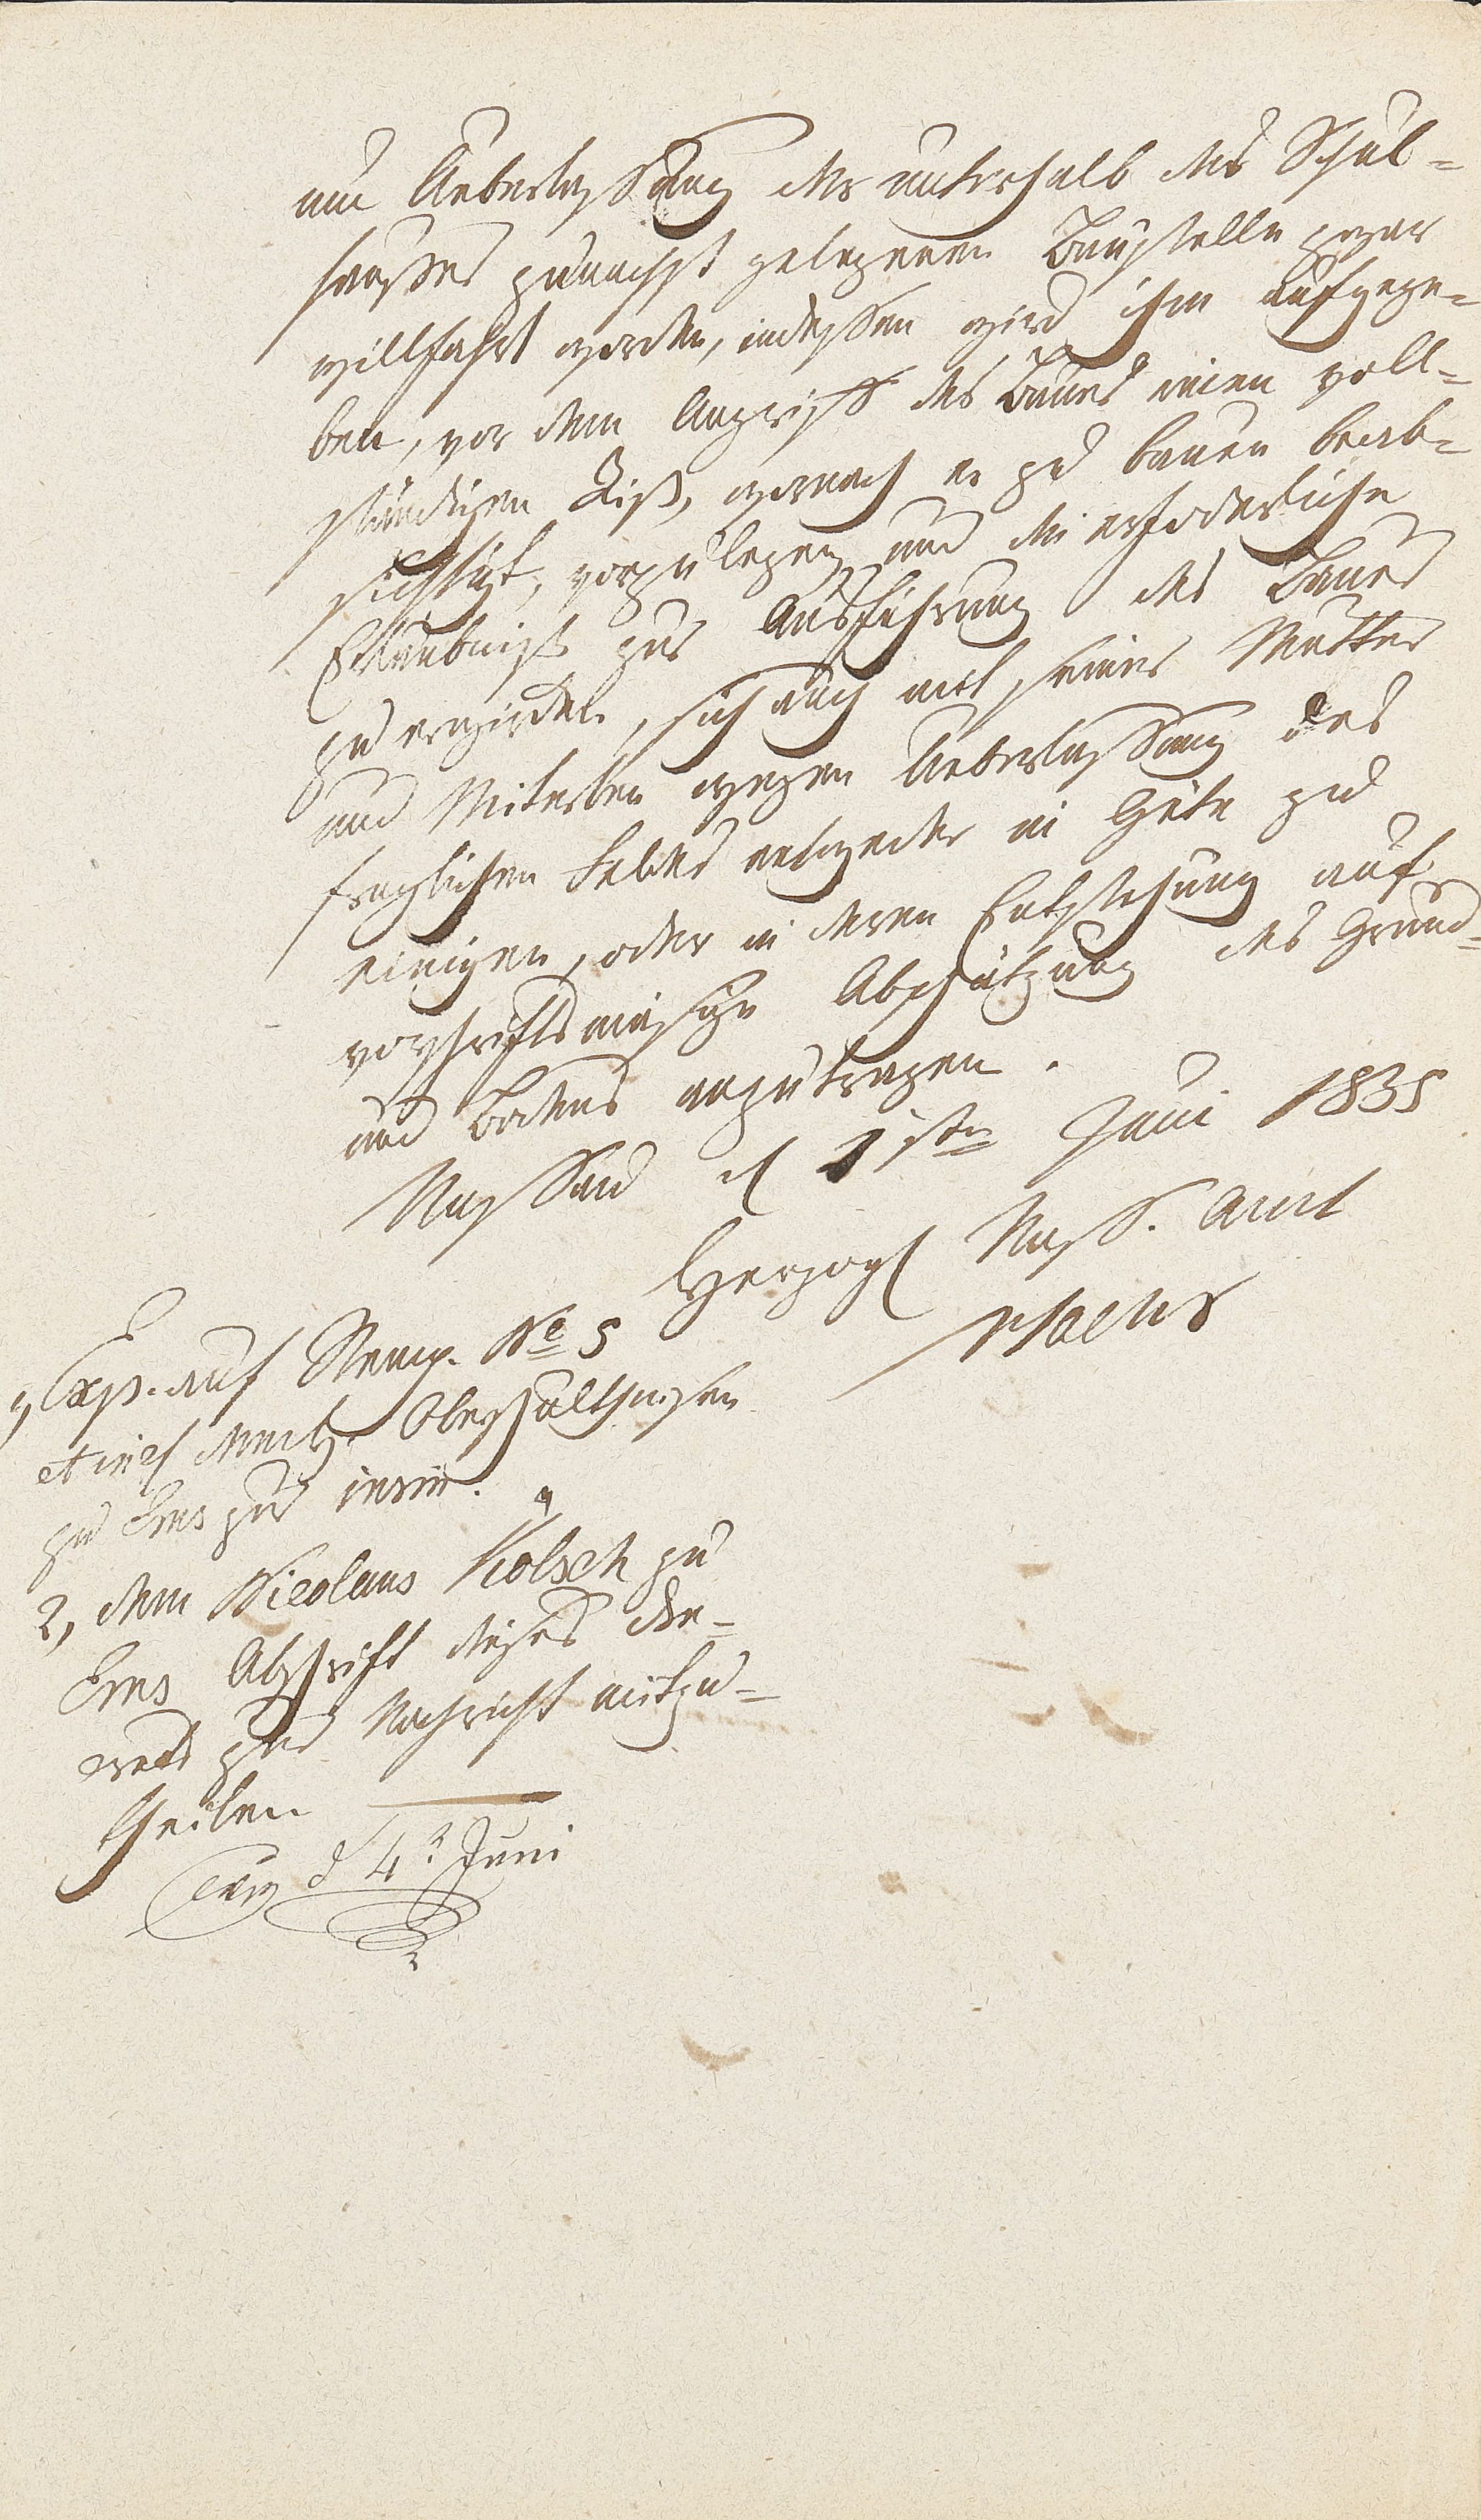 um Ueberlassung der unterhalb des Schul-
hauses zunaechst gelegenen Baustelle zwar
willfahrt worden, indessen wird ihm aufgege-
ben, vor dem Angriff des Baues einen voll-
ständigen Riß, wornach er zu bauen beab-
sichtigt, vorzulegen und die erfoderliche
Erlaubniß zur Ausführung des Baues
zu erwirken, sich auch mit seiner Mutter
und Miterben wegen Ueberlassung des
fraglichen Feldes entweder in Güte zu
einigen, oder in deren Entstehung auf
vorschriftsmäsige Abschätzung des Grund-
und Bodens anzutragen.
Nassau d 1sten Juni 1835
Herzogl Nass. Amt
1, Exp. auf Stemp. No 5
et dem Oberschultheisen
zu Ems zur insin.
2, dem Nicolaus Kölsch zu
Ems Abschrift dieses De-
crets zur Nachricht mitzu-
theilen
exp d 4t Juni